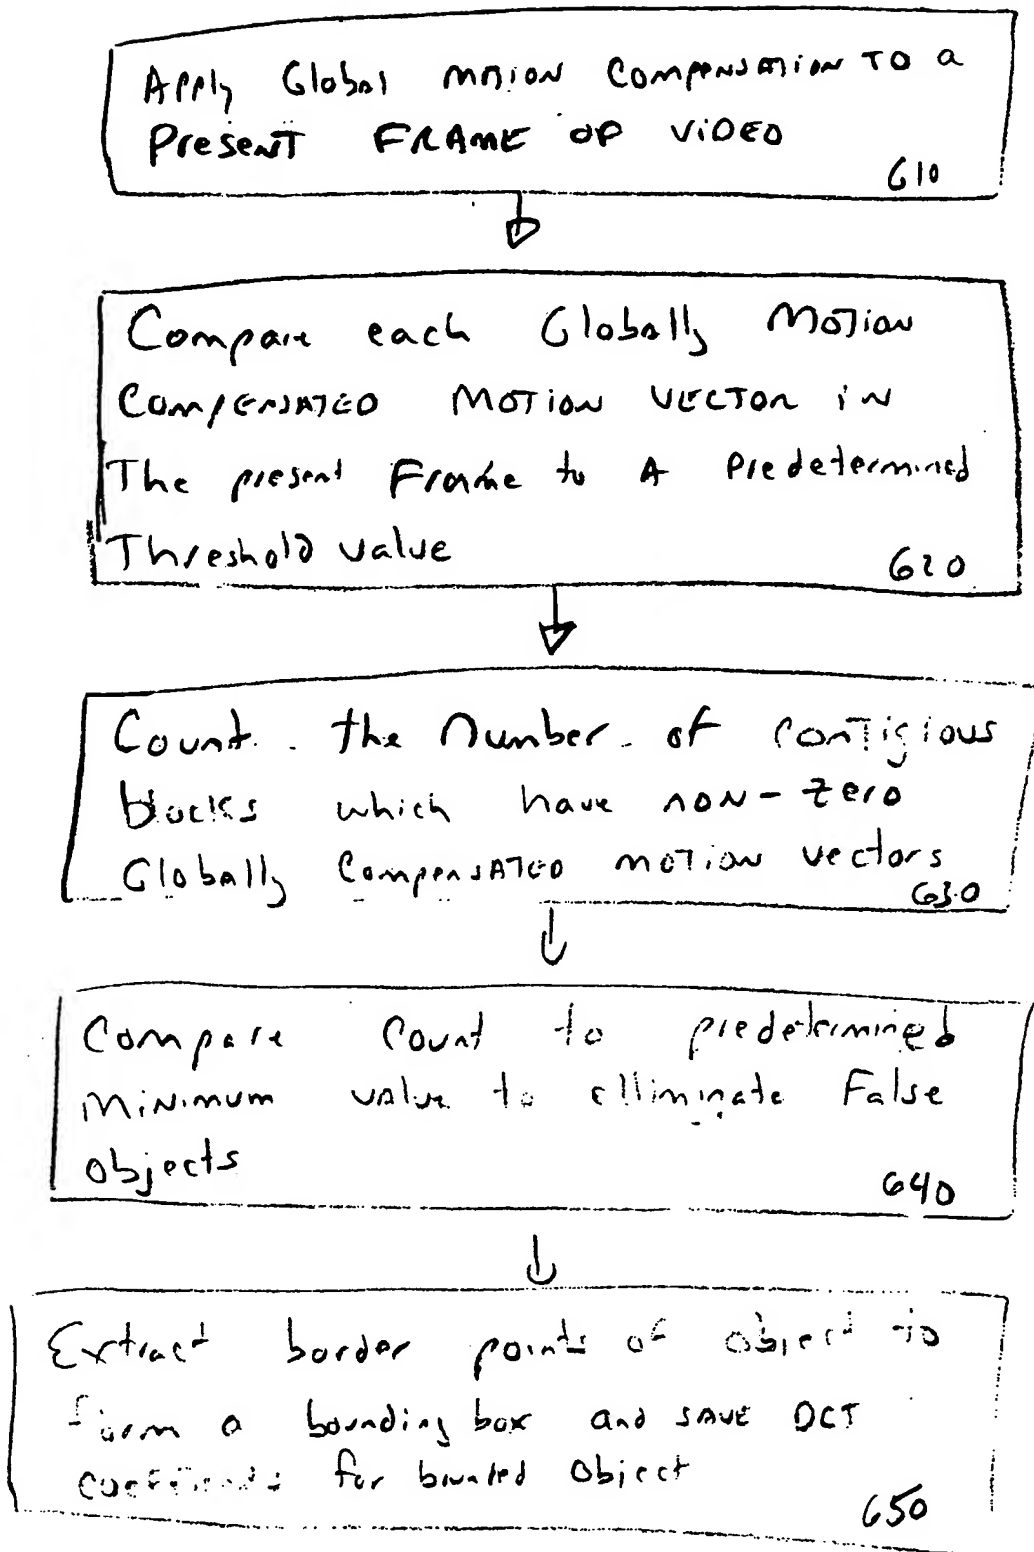 Apply Global Motion Compensation To a
Present Frame of Video
610
Compare each Globally Motion
Compensated Motion Vector in
The present Frame to A Predetermined
Threshold value
620
Count the Number of contigious
blocks which have non-zero
Globally Compensated motion vectors
630
Compare Count to predetermined
Minimum value to elliminate False
objects
640
Extract border points of object to
form a bounding box and save DCT
coefficients for bounded Object
650